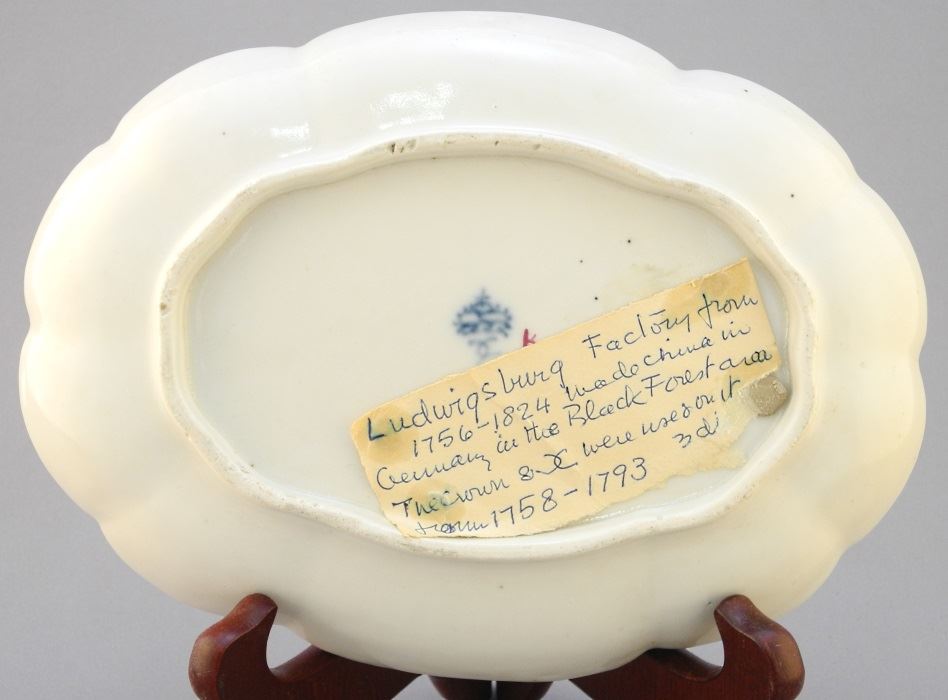 K
Ludwigsburg Factory from
1756-1824 made china in
Germany in the Black Forest area
The crown & X were used on it
from 1758-1793 3d